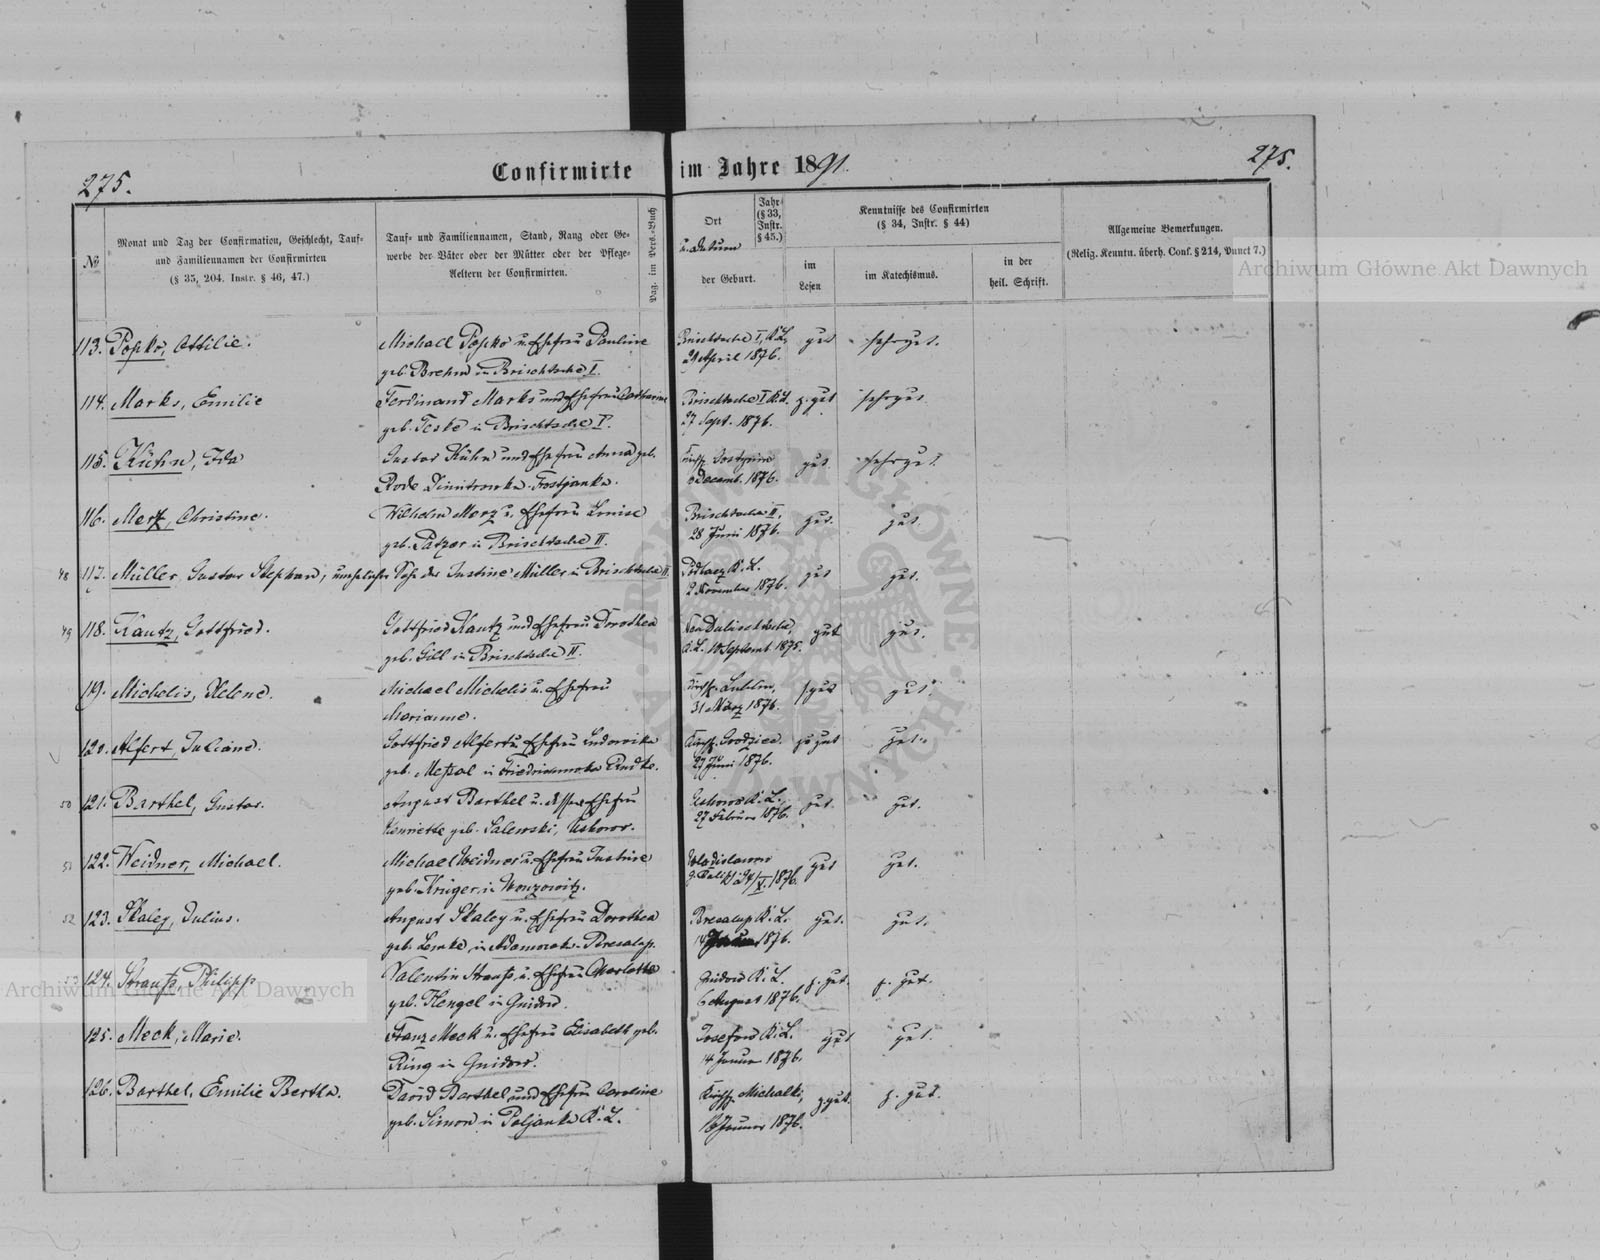 275.
Confirmirte im Jahre 1891.
275.
№
Monat und Tag der Confirmation, Geschlecht, Tauf-
und Familiennamen der Confirmirten
(§ 35, 204. Instr. § 46, 47.)
Tauf- und Familiennamen, Stand, Rang oder Ge-
werbe der Väter oder der Mütter oder der Pflege-
Aeltern der Confirmirten.
Pag. im Pers.-Buch
Ort
u. Datum
der Geburt.
Jahr
(§ 33,
Instr.
§ 45.)
Kenntnisse des Confirmirten
(§ 34, Instr. § 44)
im
Lesen
im Katechismus.
in der
heil. Schrift.
Allgemeine Bemerkungen.
(Relig. Kenntn. überh. Conf. § 214, Punct 7.)
Archiwum Główne Akt Dawnych
113. Popko, Ottilie. Michael Popko u. Ehefrau Pauline Brischtsche I, K. L. gut sehr gut.
geb. Brehm in Brischtsche I. 21 April 1876.
114. Marks, Emilie Ferdinand Marks und Ehefrau Catharine Brischtsche I K. L. z. gut sehr gut
geb. Teske in Brischtsche I. 27 Sept. 1876.
115. Kühn, Ida Gustav Kühn und Ehefrau Anna geb. gut. sehr gut.
Rode Dimitrowka-Trostjanka. Decemb. 1876.
116. Merz, Christine. Wilhelm Merz u. Ehefrau Louise Brischtsche II, gut. gut.
geb. Patzer in Brischtsche II. 28 Juni 1876.
48 117. Müller, Gustav Stephan, unehelicher Sohn der Justine Müller in Brischtsche II. K. L. gut gut.
2 November 1876.
49 118. Kautz, Gottfried. Gottfried Kautz und Ehefrau Dorothea gut gut.
geb. Gill in Brischtsche II. K. L. 10 Septemb. 1875.
119. Michelis, Helene. Michael Michelis u. Ehefrau Kirchsp. Lublin, gut gut.
Marianne. 31 März 1876.
120. Alfert, Juliane. Gottfried Alfert u. Ehefrau Ludowika Kirchsp. Grodziec. gut gut.
geb. Metzol in 27 Juni 1876.
50 121. Barthel, Gustav. August Barthel u. dessen Ehefrau K. L. gut. gut.
Henriette geb. Salewski, Uschorow. 27 Februar 1876.
51 122. Weidner, Michael. Michael Weidner u. Ehefrau Justine Wladislawow gut gut.
geb. Krüger, in 1876.
52 123. Skaley, Julius. August Skaley u. Ehefrau Dorothea Bresalup K. L. gut. gut.
geb. Lemke, in Adamowka-Bresalup. 14 Januar 1876.
53 124. Strauß, Philipp Valentin Strauß u. Ehefrau Charlotte Gnidow K. L. z. gut. z. gut.
geb. Hengel in Gnidow. 6 August 1876.
Archiwum Główne Akt Dawnych
125. Meck, Marie. Franz Meck u. Ehefrau Elisabeth geb. Josefow K. L. gut gut.
Ring in Gnidow. 14 Januar 1876.
126. Barthel, Emilie Bertha. David Barthel und Ehefrau Caroline Kirchsp. Michalki, z. gut. z. gut.
geb. Simon in Poljanka K. L. Januar 1876.
ARCHIWUM GŁÓWNE AKT DAWNYCH